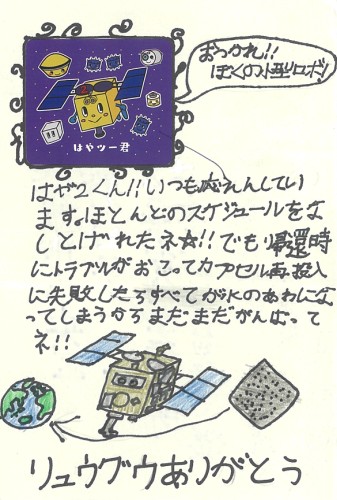 おつかれ!!
ぼくの小型ロボ!
はやツー君
はや2くん!!いつも応えんしてい
ます。ほとんどのスケジュールをな
しとげれたネ☆!!でも帰還時
にトラブルがおこってカプセル再投入
に失敗したらすべてが水のあわにな
ってしまうからまだまだがんばって
ネ!!
リュウグウありがとう